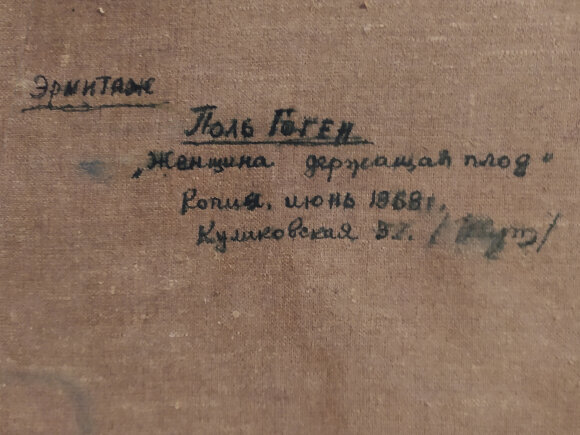 Эрмитаж
Поль Гоген
„Женщина держащая плод"
Копия, июнь 1968г.
Куликовская